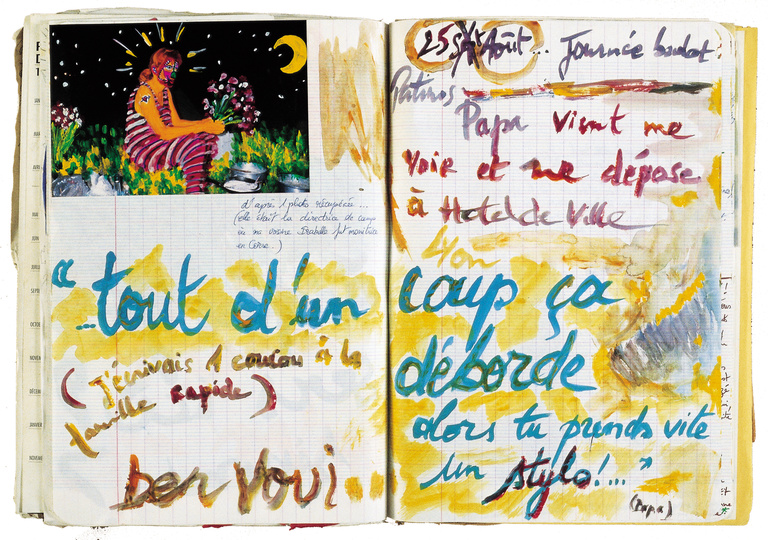 JAN
MAR
AVRIL
MAI
OCTOB
NOVEM
DÉCEM
JANVIER
d'après 1 photo récupérée ...
(elle était la directrice de camp
où ma voisine Isabelle fut monitrice
en Corse..)
"...tout d'un
(J'écrivais 1 coucou à la
famille rapide)
ben voui
25 Août... Journée boulot
Puteaux
Papa vient me
voir et me dépose
à Hotel de Ville
coup ça
déborde
alors tu prends vite
un stylo!..."
(Papa)